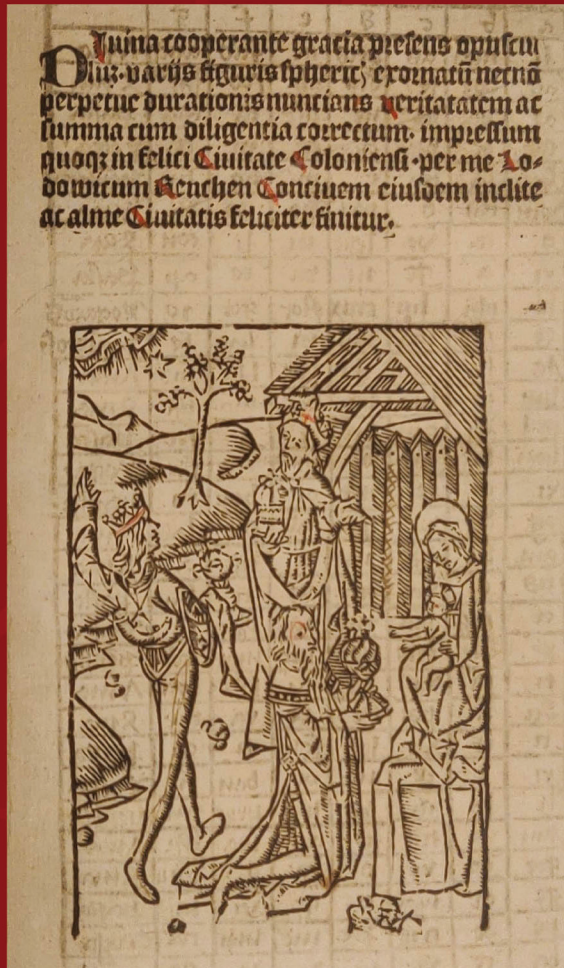 Diuina cooperante gracia presens opuscu
luz. varijs figuris sphericꝭ exornatū necnō
perpetue durationis nuncians veritatatem ac
summa cum diligentia correctum. impressum
quoqꝫ in felici Ciuitate Coloniensi. per me Lo-
dowicum Renchen Conciuem eiusdem inclite
ac alme Ciuitatis feliciter finitur.